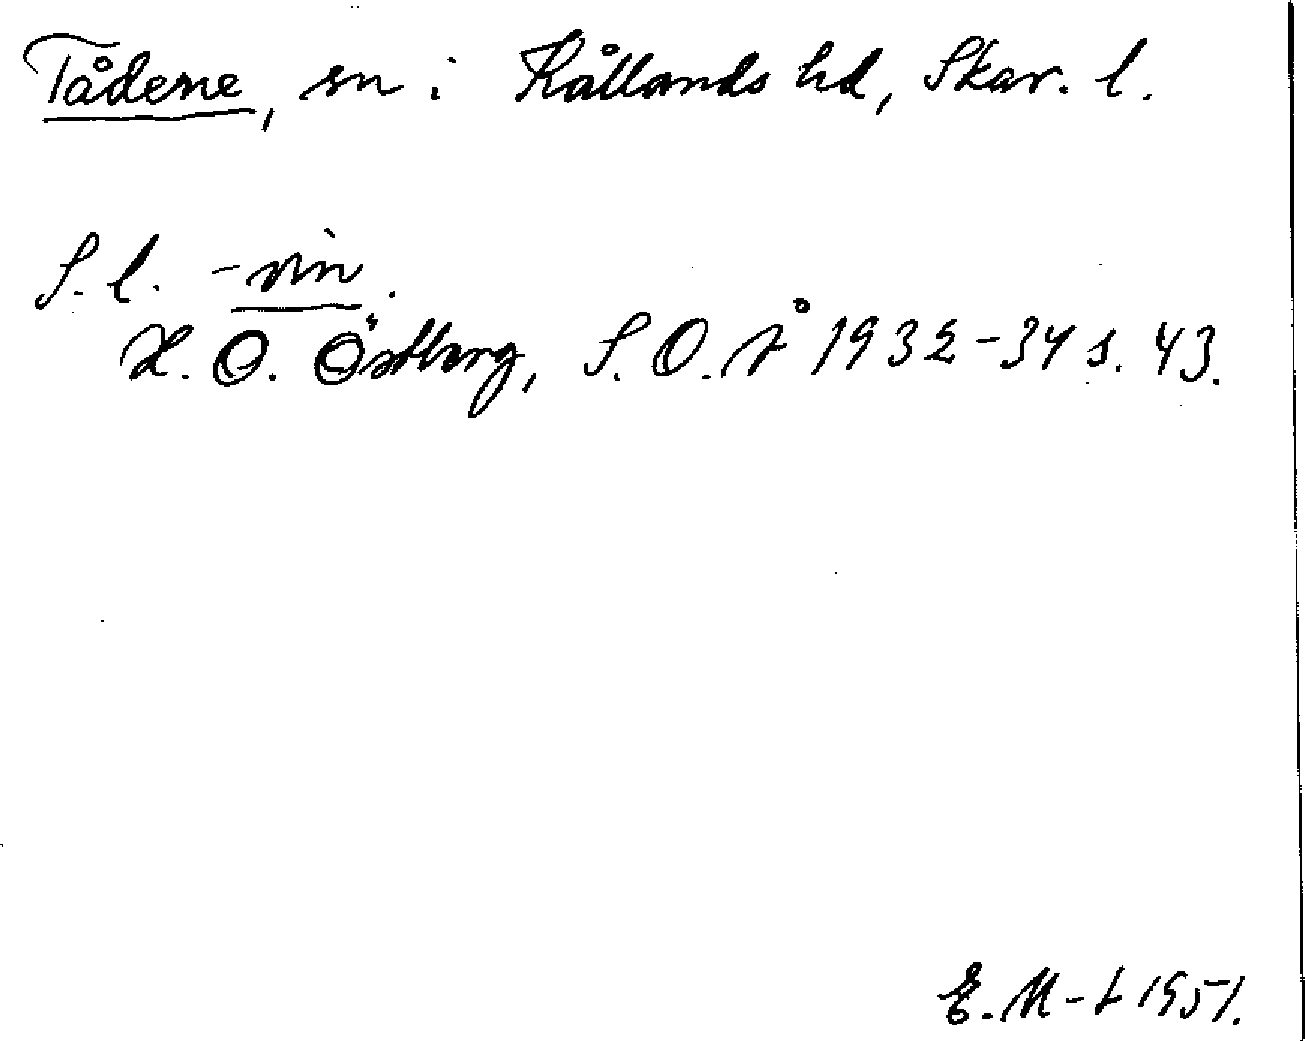 Tådene, sn i Kållands hd, Skar. l.
S. l. -vin.
H. O. Östberg, S. O. Å 1932-34 s. 43.
E. M-t 1951.